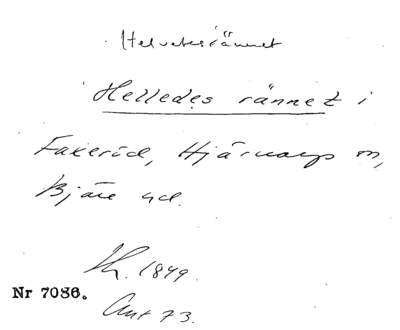 Helvetesrännet
Helledes rännet i
Faxeröd, Hjärnarps sn,
Bjäre hd.
1849.
Nr 7086.
Ant 73.